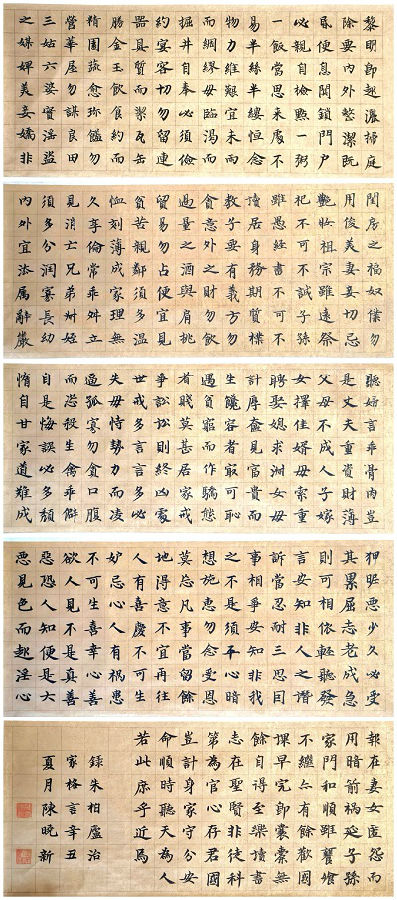 黎明即起灑掃庭
除要内外整潔既
昏便息關鎖門户
必親自檢點一粥
一飯當思來處不
易半絲半縷恒念
物力維艱宜未雨
而綢繆毋臨渴而
掘井自奉必須儉
約宴客切勿留連
器具質而潔瓦缶
勝金玉飲食約而
精園蔬愈珍饈勿
營華屋勿謀良田
三姑六婆實淫盗
之媒婢美妾嬌非
閨房之福奴僕勿
用俊美妻妾切忌
艷妝祖宗雖遠祭
祀不可不誠子孫
雖愚經書不可不
讀居身務期質樸
教子要有義方勿
貪意外之財勿飲
過量之酒與肩挑
貿易勿占便宜見
貧苦親鄰須多温
恤刻薄成家理無
久享倫常乖舛立
見消亡兄弟叔姪
須多分潤寡長幼
内外宜法属辭嚴
聽婦言乖骨肉豈
是丈夫重資財薄
父母不成人子嫁
女擇佳婿毋索重
聘娶媳求淑女毋
計厚奩見富貴而
生饞容者最可恥
遇貧窮而作驕態
者賤莫甚居家戒
爭訟訟則終凶處
世戒多言言多必
失毋恃勢力而凌
逼孤寡勿貪口腹
而恣殺生禽乖僻
自是悔誤必多頹
惰自甘家道難成
狎昵惡少久必受
其累屈志老成急
則可相依輕聽發
言安知非人之譖
訴當忍耐三思因
事相爭安知非我
之不是須平心暗
想施惠勿念受恩
莫忘凡事當留餘
地得意不宜再往
人有喜慶不可生
妒忌心人有禍患
不可生喜幸心善
欲人見不是真善
惡恐人知便是大
惡見色而起淫心
報在妻女匿怨而
用暗箭禍延子孫
家門和順雖饔飧
不繼亦有餘歡國
課早完即囊橐無
餘自得至樂讀書
志在聖賢非徒科
第為官心存君國
豈計身家守分安
命順時聽天為人
若此庶乎近焉
録朱柏廬治
家格言辛丑
夏月陳曉新